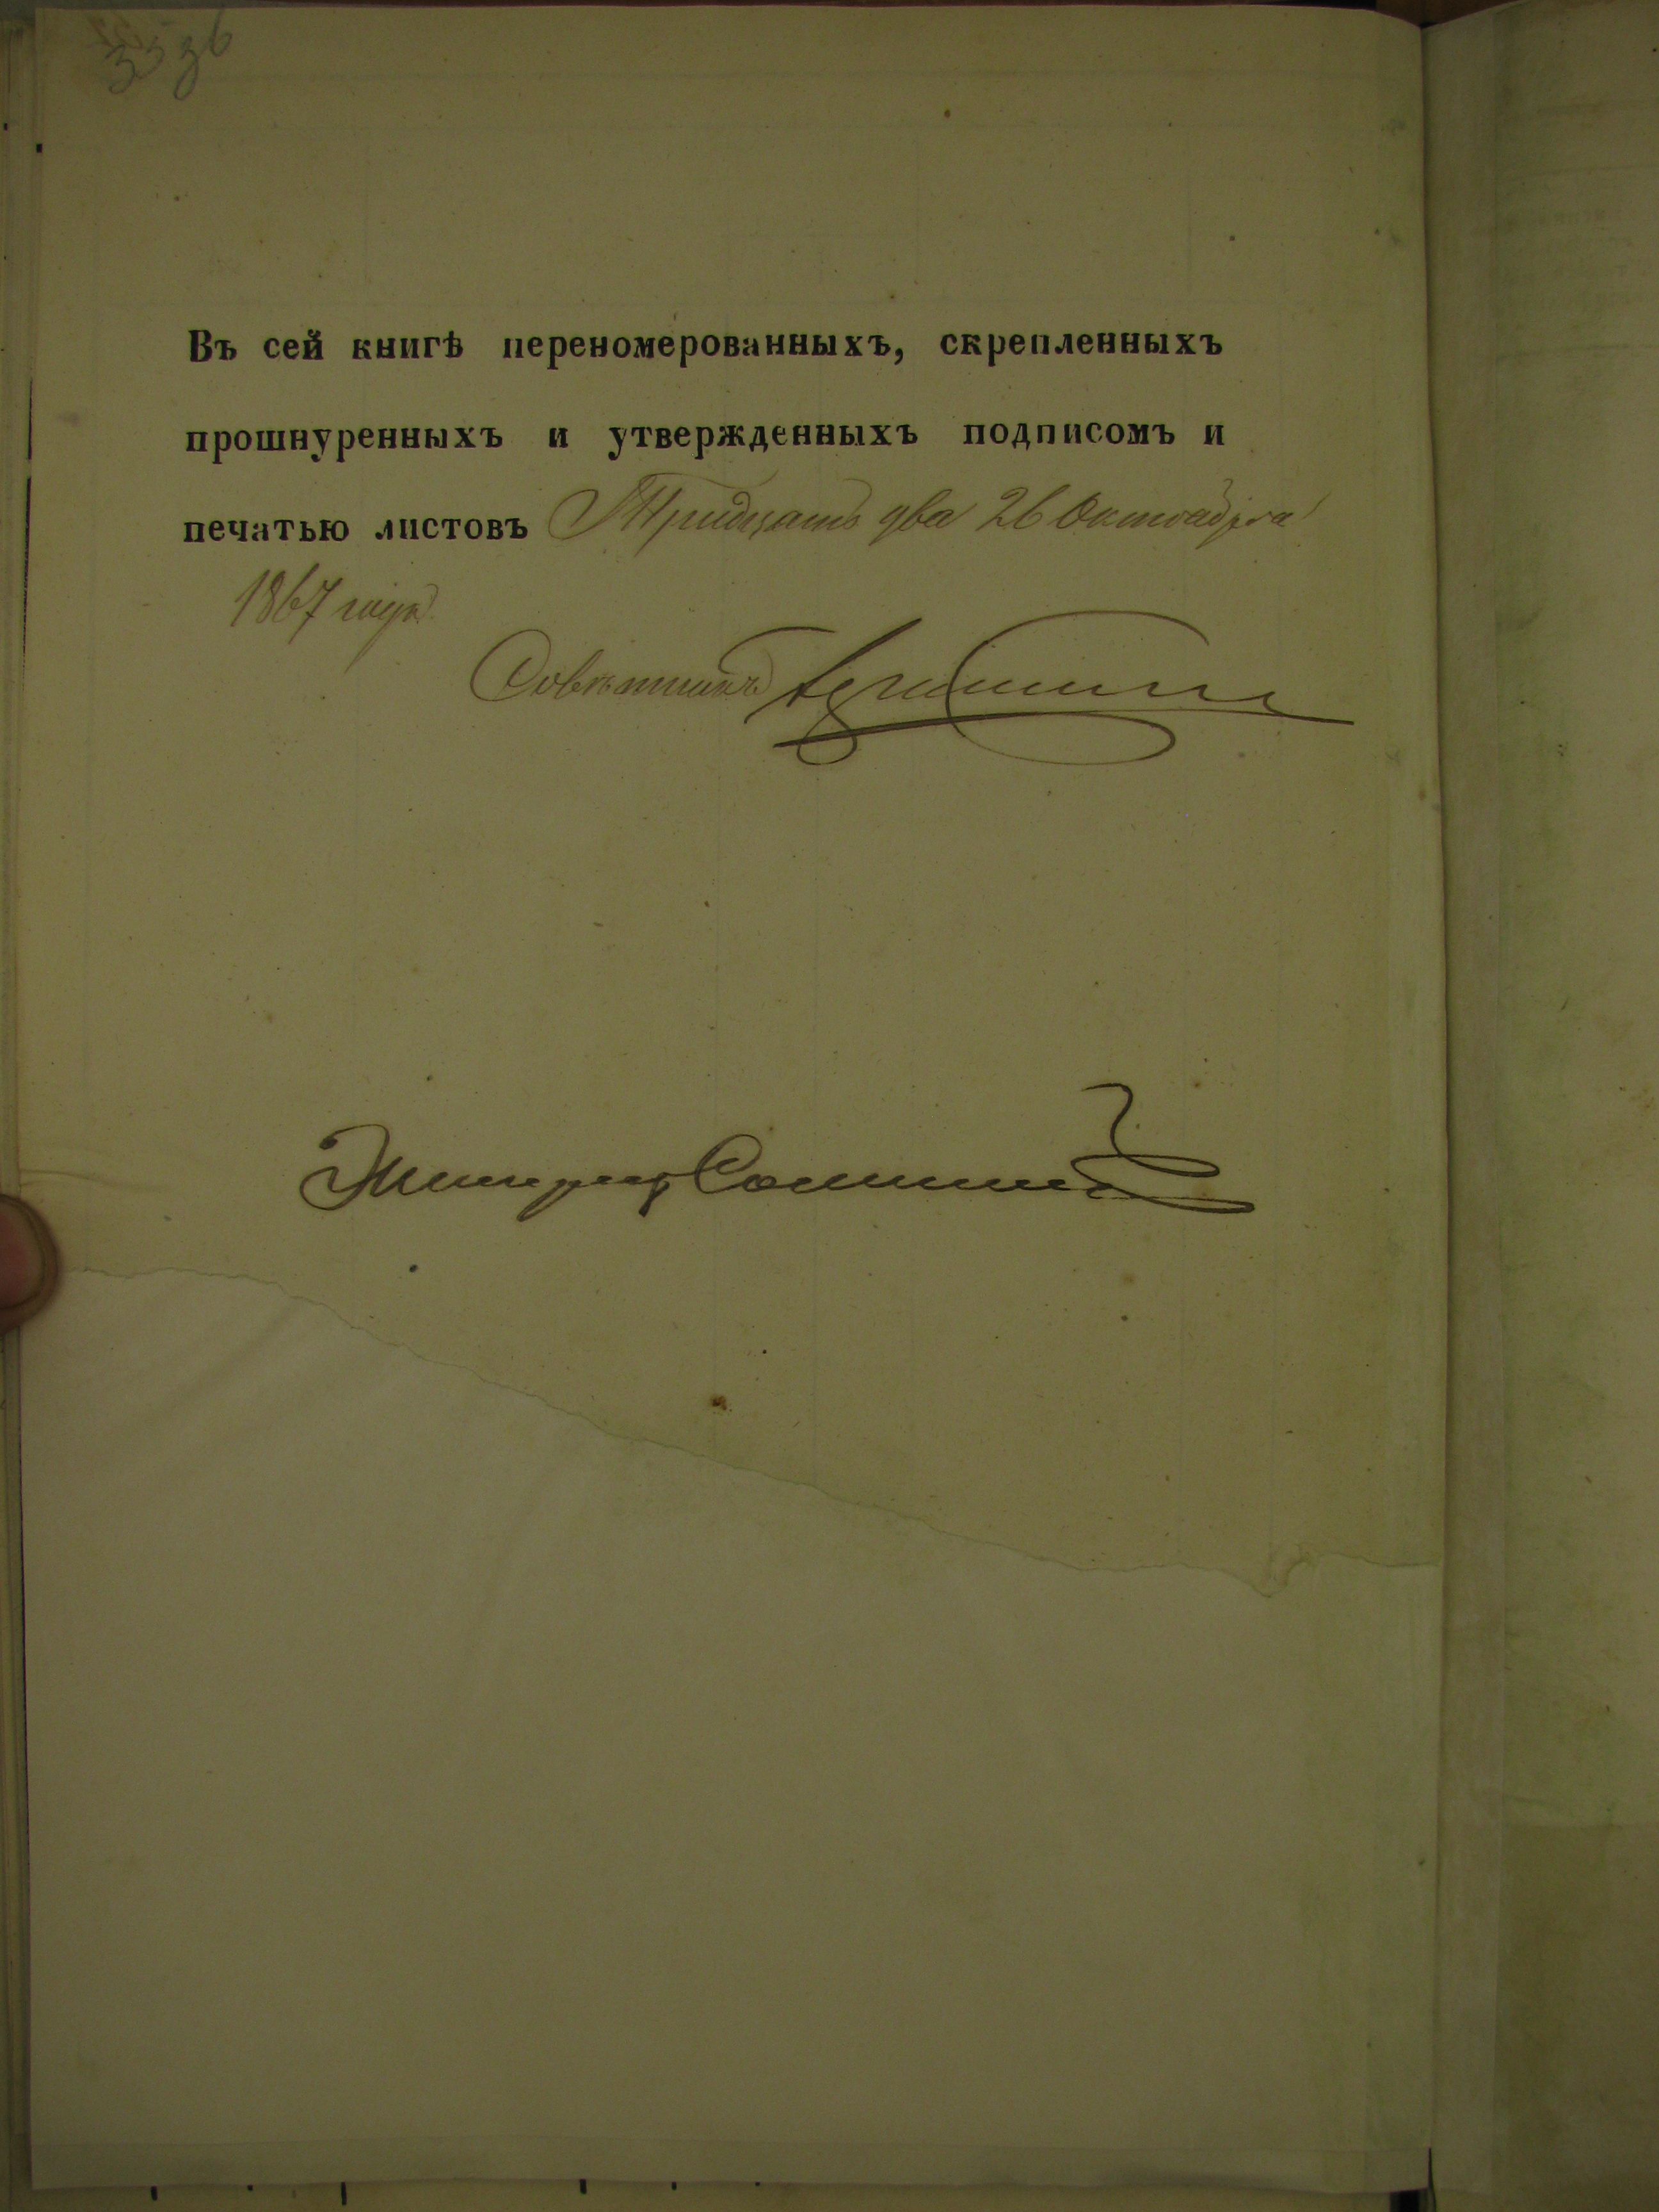 Въ сей книгѣ переномерованныхъ, скрепленныхъ
прошнуренныхъ и утвержденныхъ подписомъ и
печатью листовъ Тридцать два 26 Октября
1867 года
Совѣтникъ